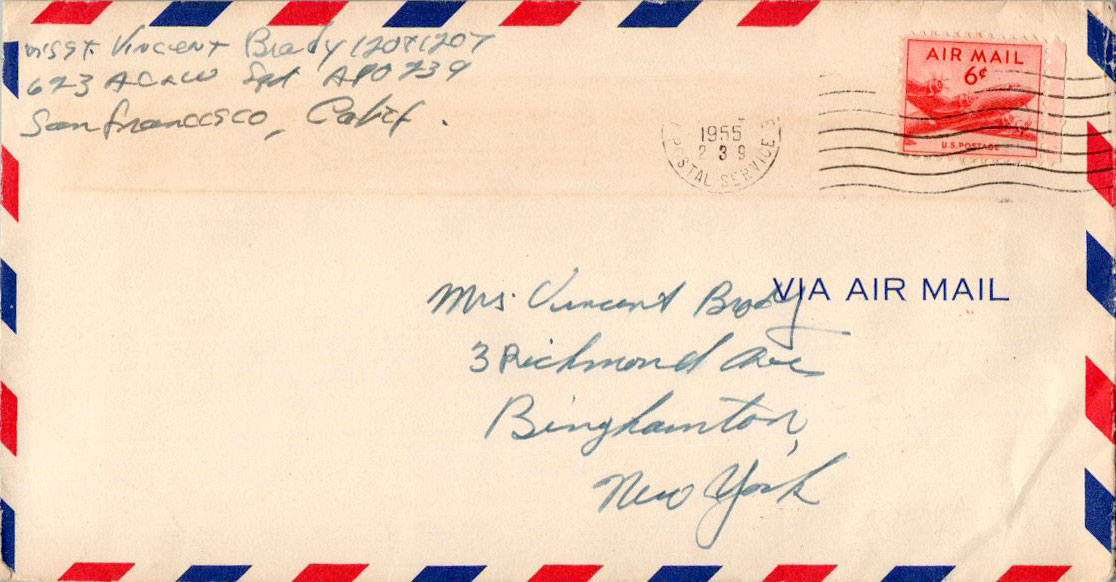 M/Sgt. Vincent Brady 12041207
623 AC&W Sqd APO 239
San Francisco, Calif.
AIR MAIL
6¢
U.S. POSTAGE
1955
2 3 9
POSTAL SERVICE
VIA AIR MAIL
Mrs. Vincent Brady
3 Richmond Ave
Binghamton,
New York